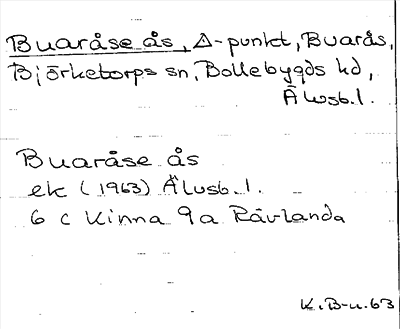 Buaråse ås, Δ-punkt, Buarås,
Björketorps sn, Bollebygds hd,
Älvsb.l.
Buaråse ås
ek (1963) Älvsb.l.
6 c Kinna 9a Rävlanda
K.B-n.63